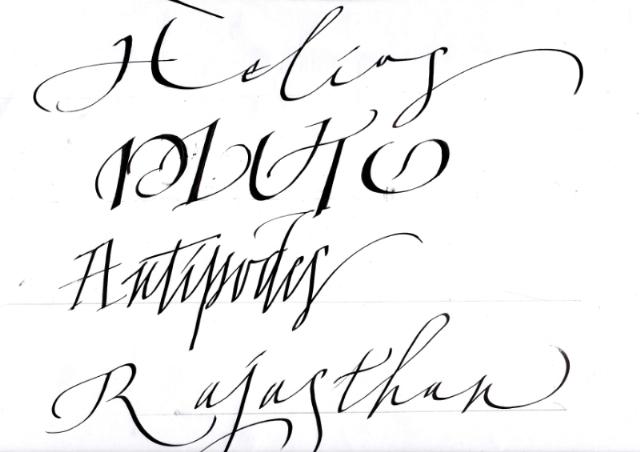 Helios
PLUTO
Antipodes
Rajasthan